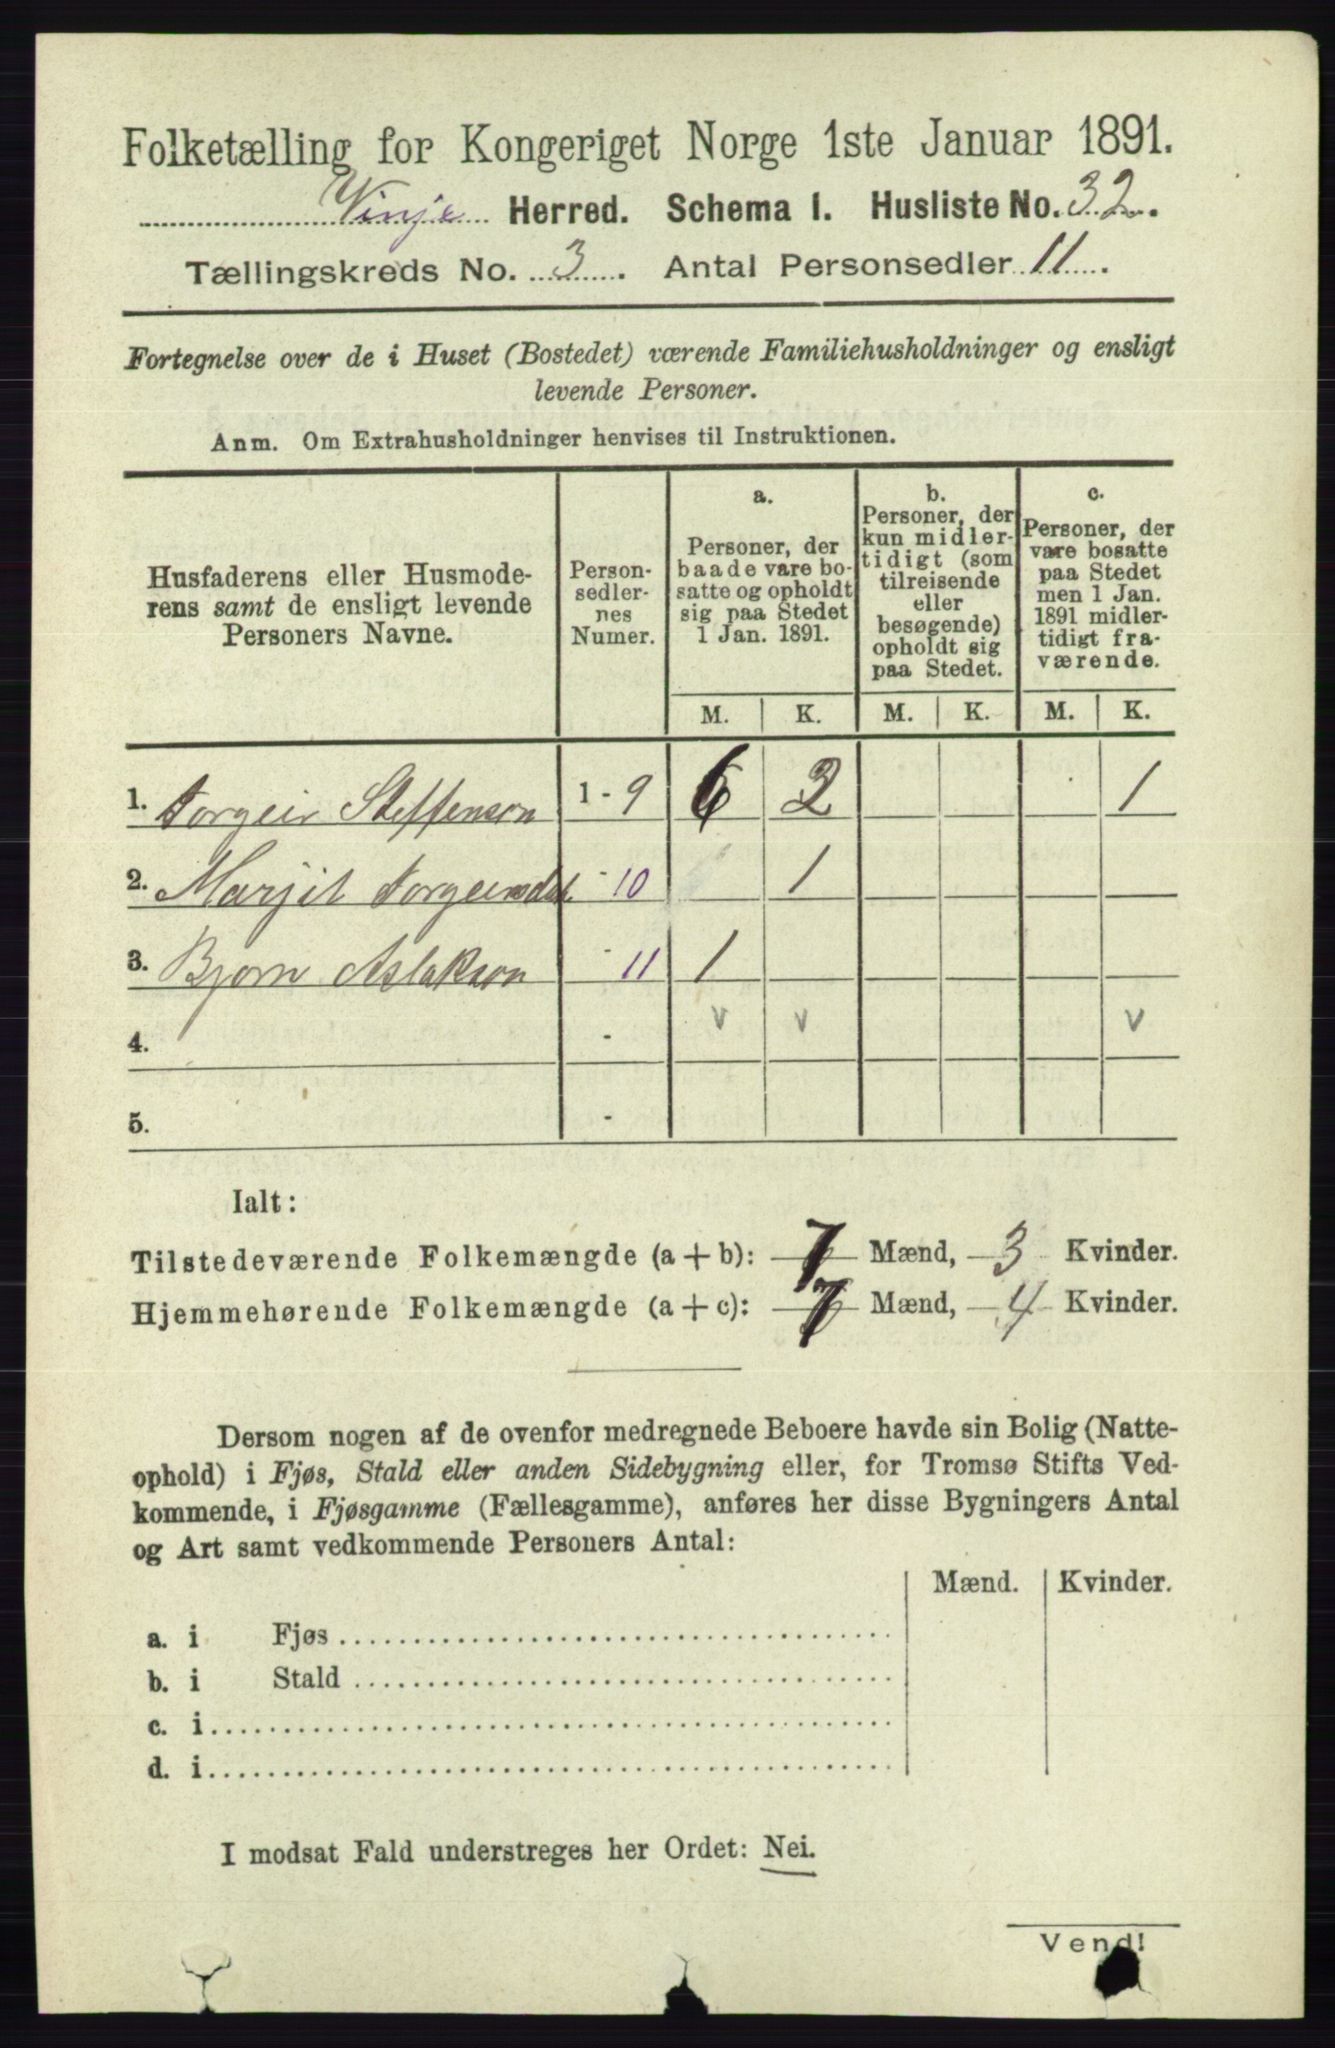 Folketælling for Kongeriget Norge 1ste Januar 1891.
Vinje Herred. Schema 1. Husliste No. 32.
Tællingskreds No. 3. Antal Personsedler 11.
Fortegnelse over de i Huset (Bostedet) værende Familiehusholdninger og ensligt
levende Personer.
Anm. Om Extrahusholdninger henvises til Instruktionen.
Husfaderens eller Husmode-
rens samt de ensligt levende
Personers Navne.
Person-
sedler-
nes
Numer.
a.
Personer, der
baade vare bo-
satte og opholdt
sig paa Stedet
1 Jan. 1891.
b.
Personer, der
kun midler-
tidigt (som
tilreisende
eller
besøgende)
opholdt sig
paa Stedet.
c.
Personer, der
vare bosatte
paa Stedet
men 1 Jan.
1891 midler-
tidigt fra-
værende.
M. K. M. K. M. K.
1. Torgeir Steffenson 1 - 9 6 2 1
2. Marjit Torgeirsdat - 10 1
3. Bjørn Aslakson - 11 1
v v v
4. -
5. -
Ialt:
Tilstedeværende Folkemængde (a + b): 7 Mænd, 3 Kvinder.
Hjemmehørende Folkemængde (a + c): 7 Mænd, 4 Kvinder.
Dersom nogen af de ovenfor medregnede Beboere havde sin Bolig (Natte-
ophold) i Fjøs, Stald eller anden Sidebygning eller, for Tromsø Stifts Ved-
kommende, i Fjøsgamme (Fællesgamme), anføres her disse Bygningers Antal
og Art samt vedkommende Personers Antal:
Mænd. Kvinder.
a. i Fjøs
b. i Stald
c. i
d. i
I modsat Fald understreges her Ordet: Nei.
Vend!